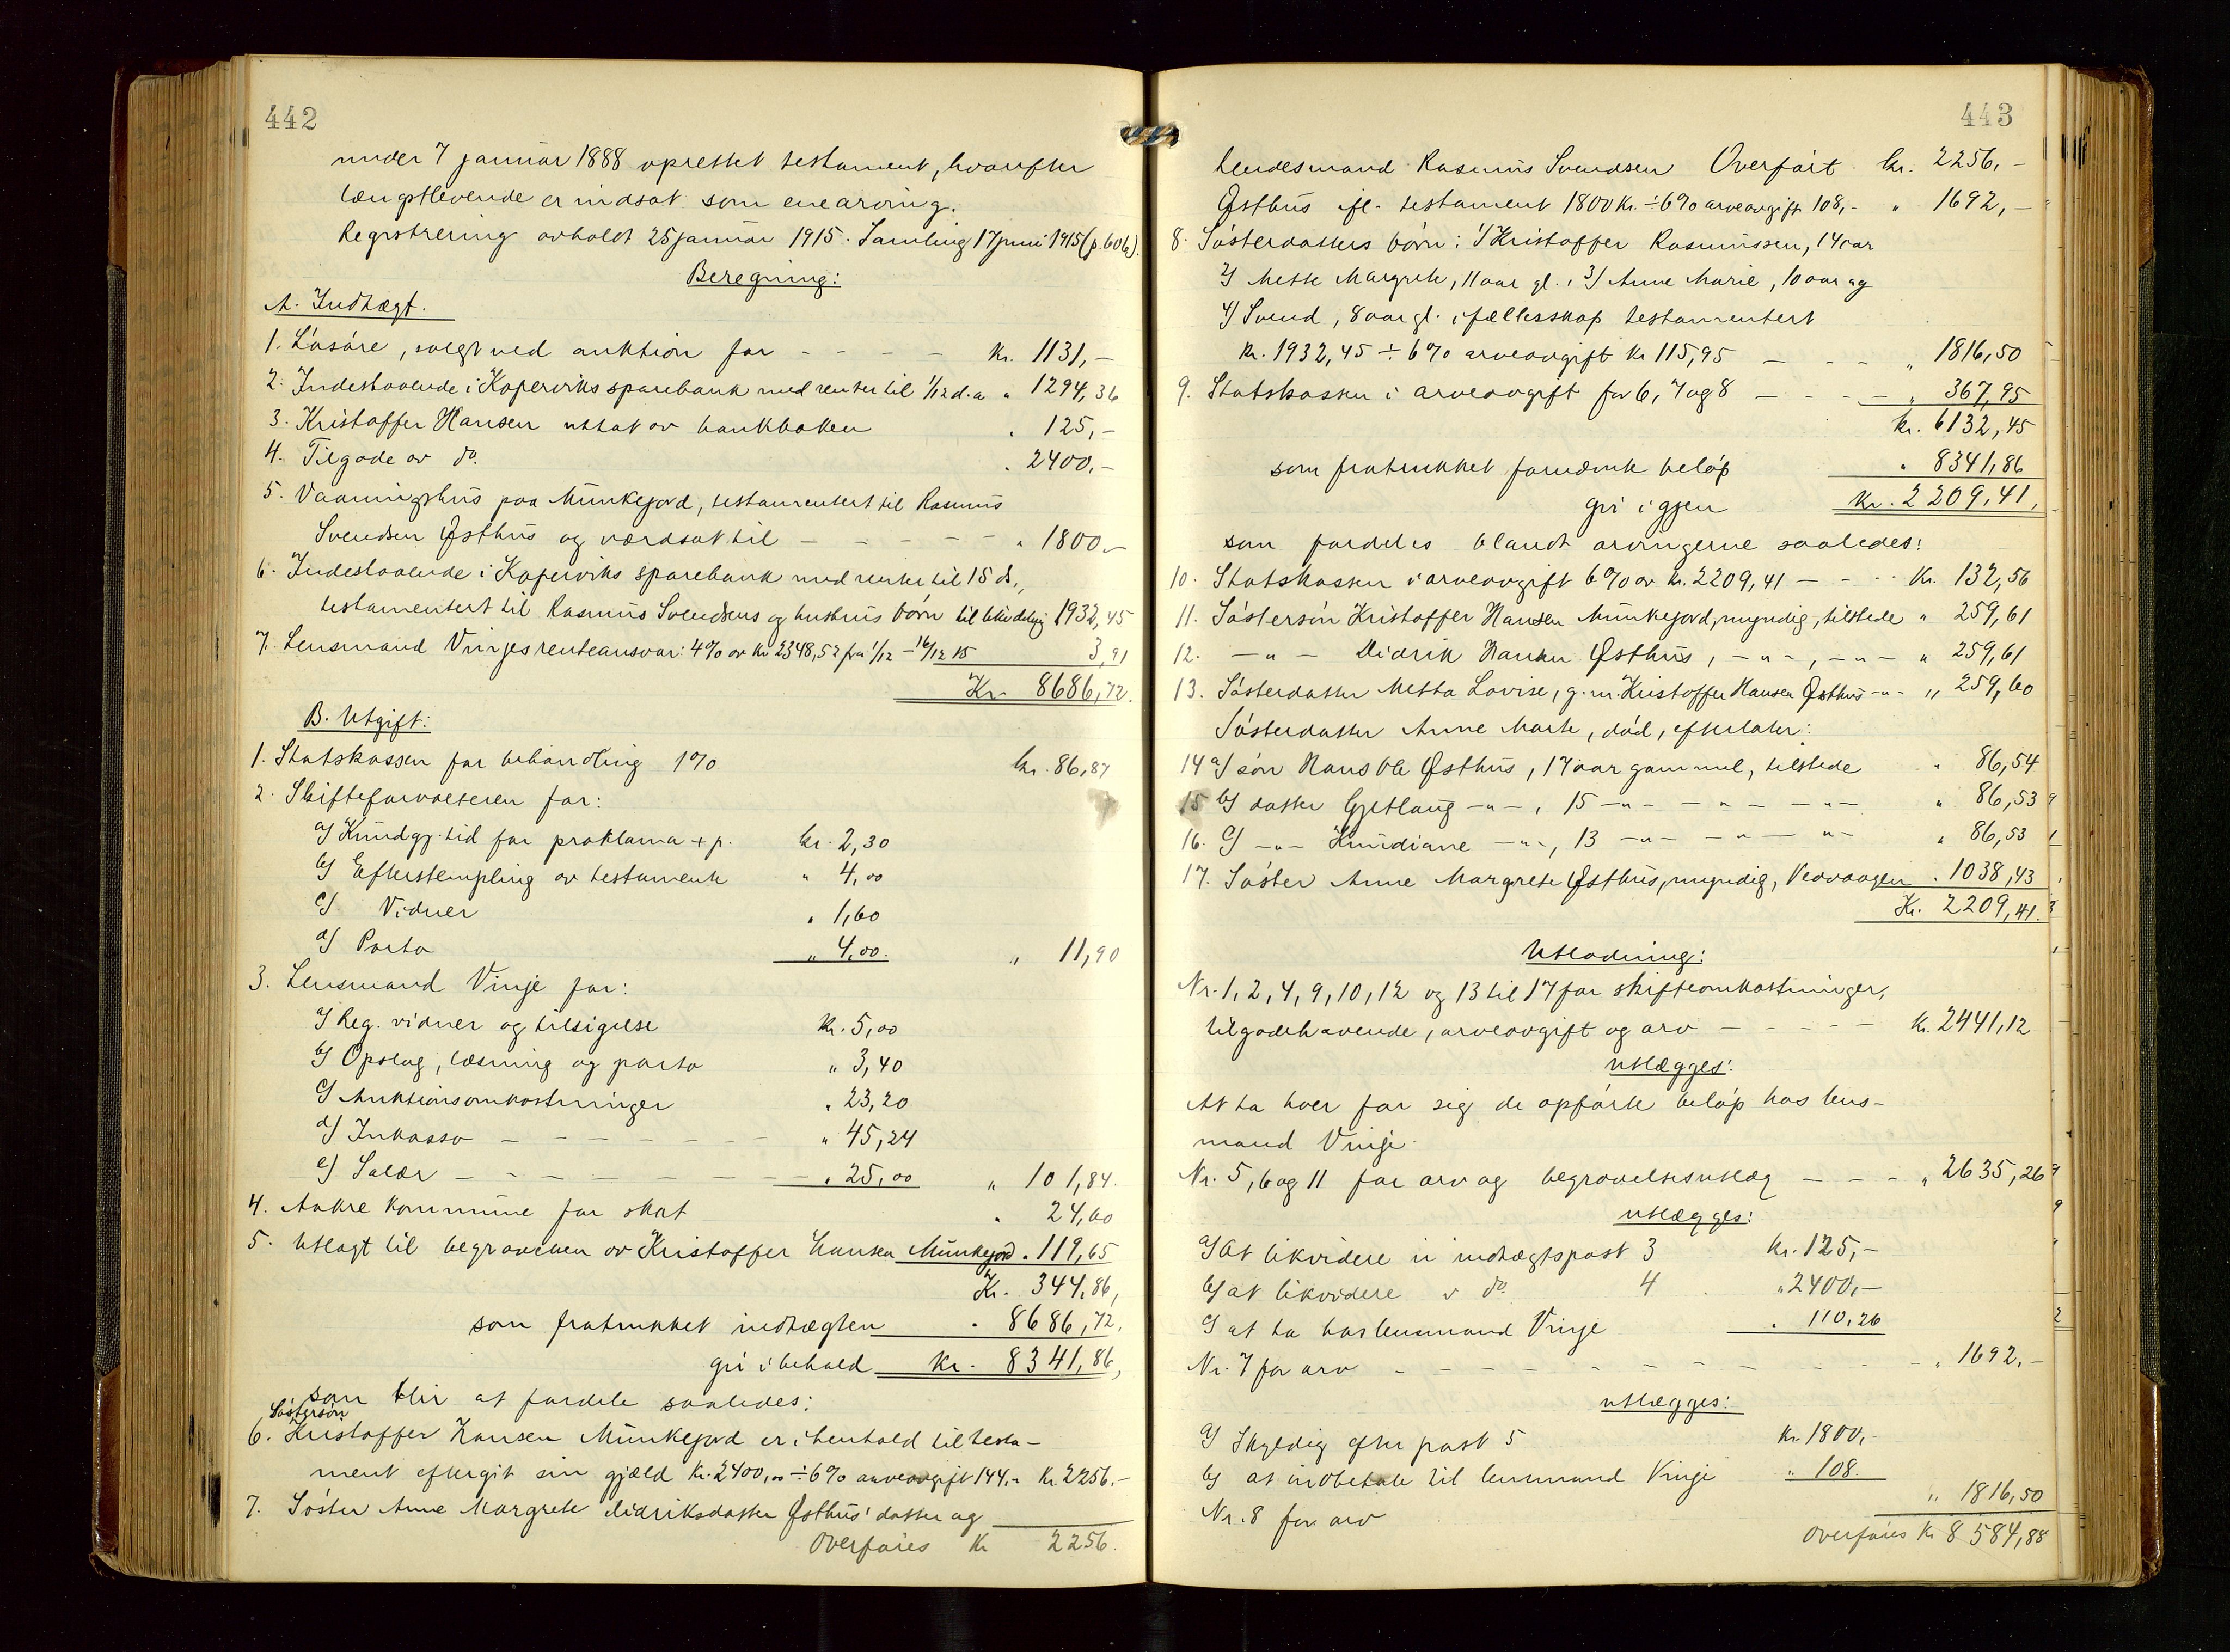 442
under 7 januar 1888 oprettet testament, hvorefter
længstlevende er indsat som enearving.
Registrering avholdt 25 januar 1915. Samling 17 juni 1915 (p. 606).
Beregning:
A. Indtægt.
1. Løsøre, solgt ved auktion for - - - - kr. 1131,-
2. Indestaaende i Koperviks sparebank med renter til 1/12 d.a. " 1294,36
3. Kristoffer Hansen uttat av bankboken " 125,-
4. Tilgode av do. " 2400,-
5. Vaaningshus paa Munkejord, testamentert til Rasmus
Svendsen Østhus og værdsat til - - - - - " 1800.-
6. Indestaaende i Koperviks sparebank med renter til 15 ds.,
testamentert til Rasmus Svendsens og hustrus børn til likedeling 1932,45
7. Lensmand Vinjes renteansvar: 4% av kr 2348,52 fra 1/12 - 16/12 15 3,91
Kr. 8686,72.
B. Utgift:
1. Statskassen for behandling 1% kr. 86,87
2. Skifteforvalteren for:
a) Kundgj. tid for proklama + p. kr. 2,30
b) Efterstempling av testamente " 4,00
c) Vidner " 1,60
d) Porto " 4,00. " 11,90
3. Lensmand Vinje for:
a) Reg. vidner og tilsigelse kr. 5,00
b) Opslag, læsning og porto " 3,40
c) Auktionsomkostninger " 23,20
d) Inkasso - - - - - - - " 45,24
e) Salær - - - - - - - - " 25,00 " 101,84.
4. Aakre kommune for skat " 24,60
5. Utlagt til begravelsen av Kristoffer Hansen Munkejord " 119,65
Kr. 344,86,
som fratrukket indtægten " 8686,72.
gir i behold kr. 8341,86,
som blir at fordele saaledes:
Søstersøn
6. Kristoffer Hansen Munkejord er i henhold til testa-
ment eftergit sin gjæld kr. 2400,00 ÷ 6% arveavgift 144.- kr. 2256.-
7. Søster Anne Margrete Didriksdatter Østhus' datter og
Overføres kr 2256.
443
lendesmand Rasmus Svendsen Overført kr. 2256,-
Østhus ifl. testament 1800 kr. ÷ 6% arveavgift 108,- " 1692,-
8. Søsterdatters børn: 1) Kristoffer Rasmussen, 14 aar
2) Mette Margrete, 11 aar gl., 3) Anne Marie, 10 aar og
4) Svend, 8 aar gl. i fællesskap testamentert
kr. 1932,45 ÷ 6% arveavgift kr 115,95 - - - " 1816,50
9. Statskassen i arveavgift for 6, 7 og 8 - - - - " 367,95
kr. 6132,45
som fratrukket foranævnte beløp " 8341,86
gir igjen kr. 2209,41,
som fordeles blandt arvingerne saaledes:
10. Statskassen i arveavgift 6% av kr. 2209,41 - - - - Kr. 132,56
11. Søstersøn Kristoffer Hansen Munkejord, myndig, tilstede " 259,61
12. - " - Didrik Hansen Østhus, - " - , - " - " 259,61
13. Søsterdatter Metta Lovise, g.m. Kristoffer Hansen Østhus - " - " 259,60
Søsterdatter Anne Marte, død, efterlater:
14 a) søn Hans Ole Østhus, 17 aar gammel, tilstede " 86,54
15 b) datter Gjetlaug - " - , 15 - " - - " - - " - " 86,53
16. c) - " - Knudiane - " - , 13 - " - - " - " - " 86,53
17. Søster Anne Margrete Østhus, myndig, Veavaagen " 1038,43
Kr. 2209,41.
Utlodning:
Nr. 1, 2, 4, 9, 10, 12 og 13 til 17 for skifteomkostninger,
tilgodehavende, arveavgift og arv - - - - - kr. 2441,12
utlægges:
At ta hver for sig de opførte beløp hos lens-
mand Vinje.
Nr. 5, 6 og 11 for arv og begravelsesutlæg - - - " 2635,26
utlægges:
a) At likvidere i indtægtspost 3 kr. 125,-
b) at likvidere i do. 4 " 2400,-
c) at ta hos lensmand Vinje " 110,26
Nr. 7 for arv - - - - - - - - - - - " 1692.-
utlægges:
a) Skyldig efter post 5 kr. 1800,-
b) at indbetale til lensmand Vinje " 108.
Nr. 8 for arv " 1816,50
Overføres kr 8584,88